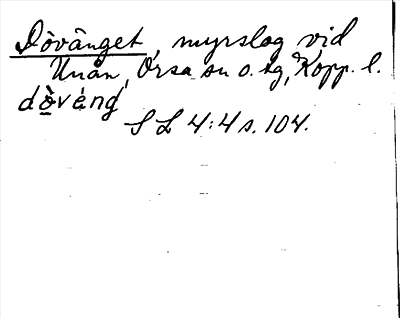 Dövänget, myrslog vid
Unån, Orsa sn o. tg, Kopp. l.
dò̱véŋg
S L 4:4 s. 104.